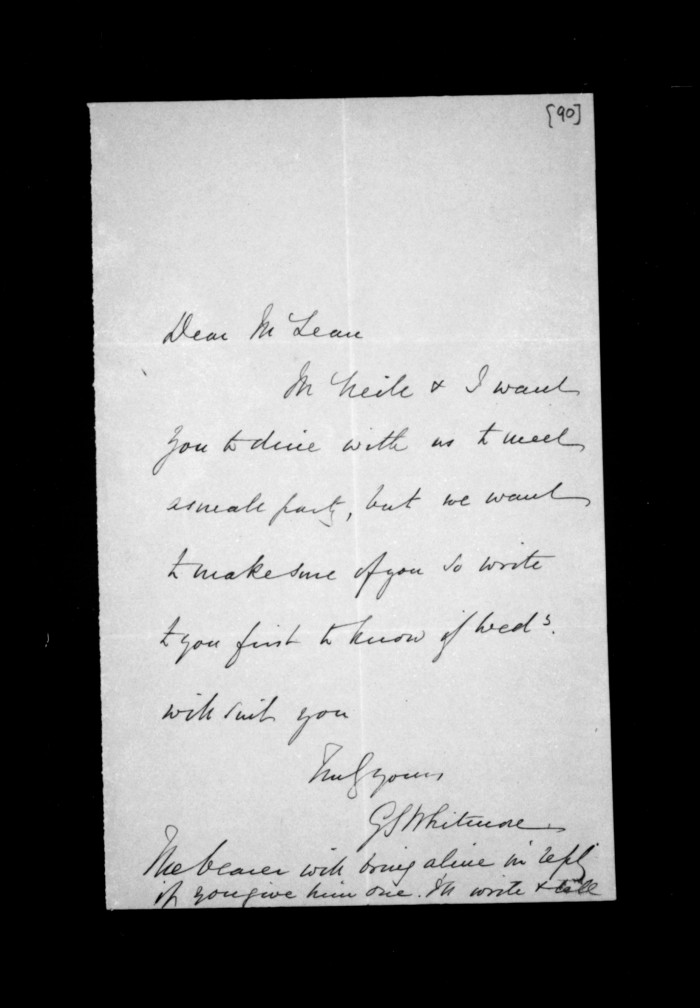 [90]
Dear McLean
McNeile & I want
you to dine with us to meet
a small party, but we want
to make sure of you so write
to you first to know if Weds.
will suit you
Truly yours
GSWhitmore
The bearer will bring a line in reply
if you give him one. I'll write & tell